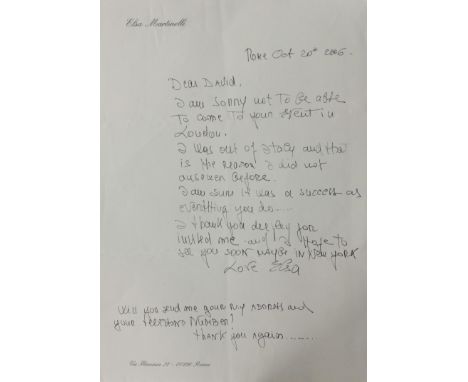 Elsa Martinelli
Rome Oct 20th 2006.
Dear David,
I am sorry not to be able
to come to your event in
London.
I was out of Italy and that
is the reason I did not
answer before.
I am sure it was a success as
everything you do.....
I thank you deeply for
invited me and I hope to
see you soon maybe in New York
Love Elsa
Will you send me your my adress and
your telephono number!
thank you again.......
Roma